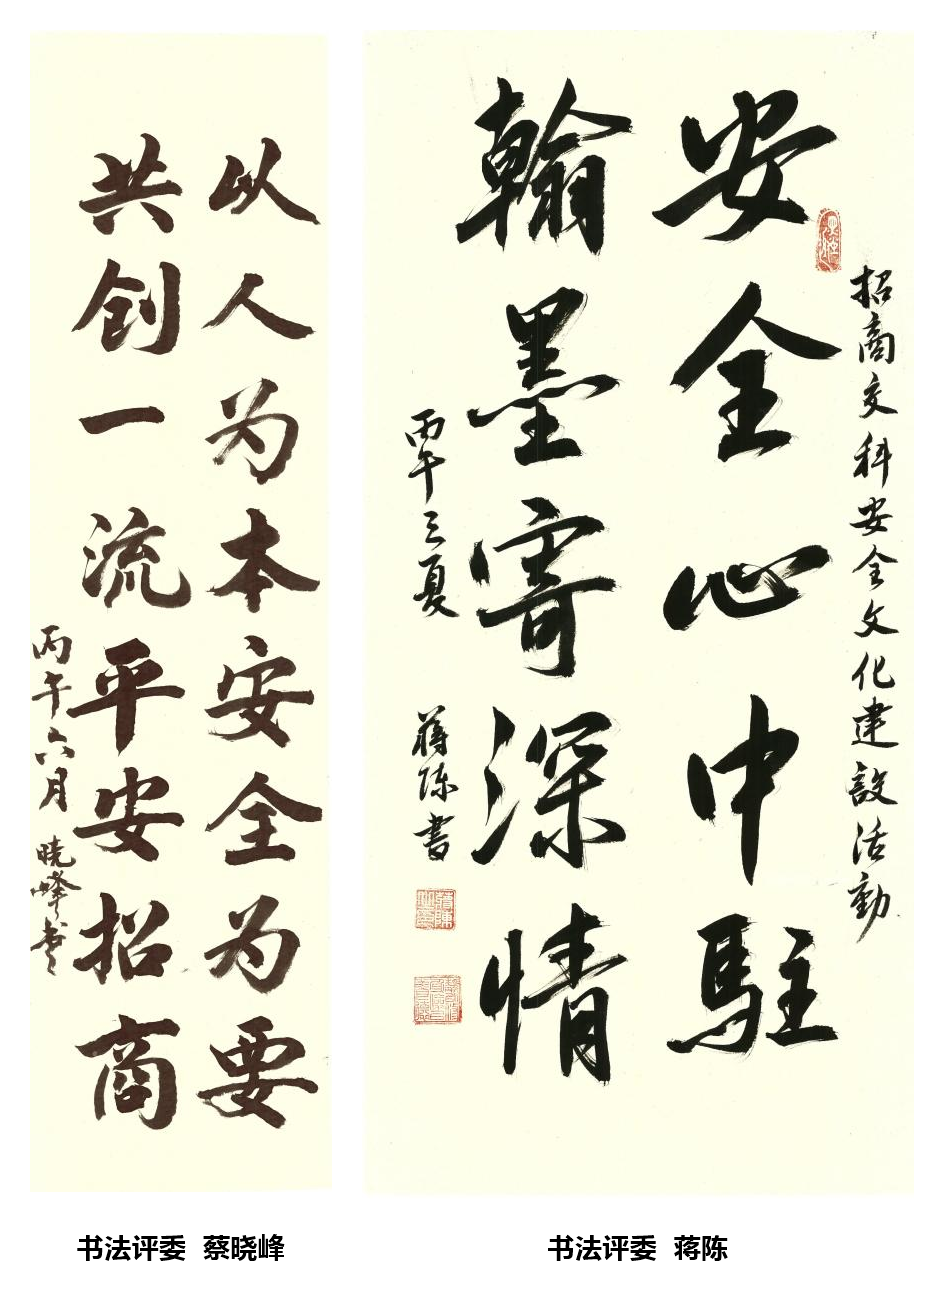 以人为本安全为要
共创一流平安招商
丙午六月 晓峰书
招商交科安全文化建設活動
安全心中駐
翰墨寄深情
丙午之夏 蔣陈書
书法评委 蔡晓峰
书法评委 蒋陈